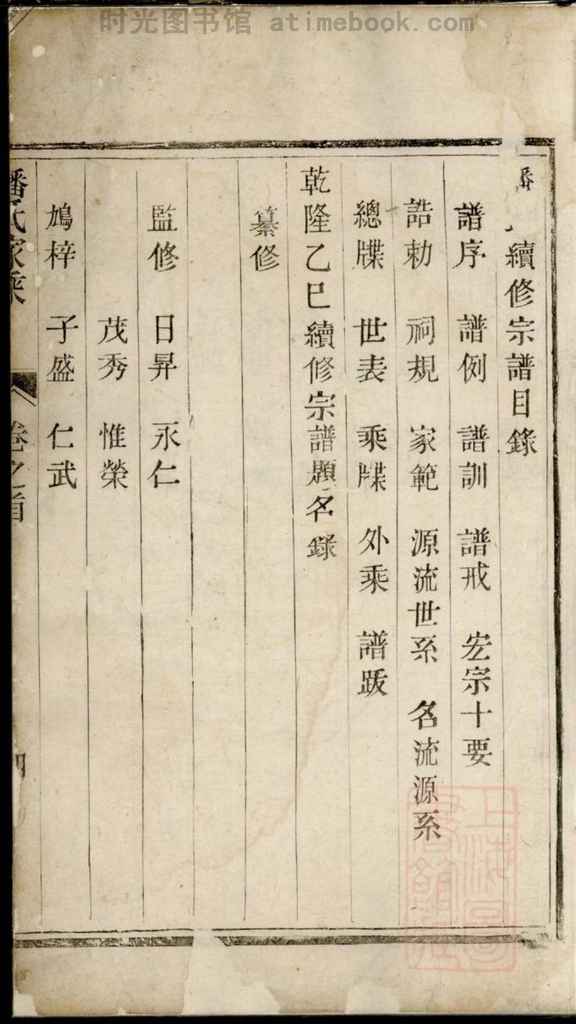 时光图书馆 atimebook.com
續修宗譜目錄
譜序 譜例 譜訓 譜戒 宏宗十要
誥勅 祠規 家範 源流世系 名流源系
總牒 世表 乘牒 外乘 譜跋
乾隆乙巳續修宗譜題名錄
纂修
監修 日昇 永仁
茂秀 惟榮
鳩梓 子盛 仁武
潘氏家乘 卷之首